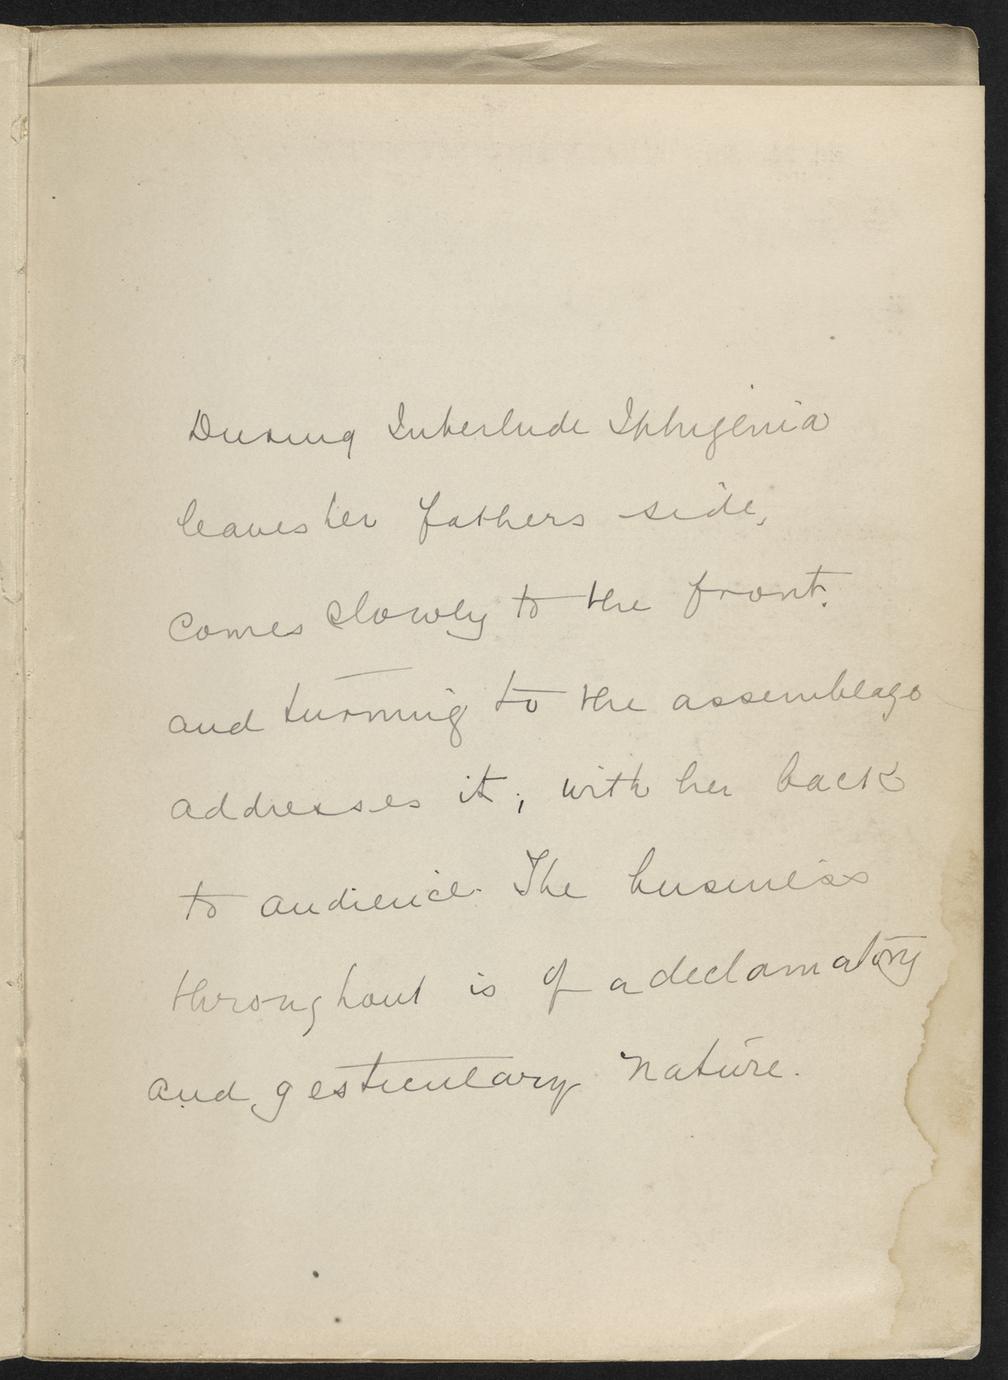 During Interlude Iphigenia
leaves her fathers side,
comes slowly to the front.
and turning to the assemblage
addresses it, with her back
to audience. The business
throughout is of a declamatory
and gesticulary nature.